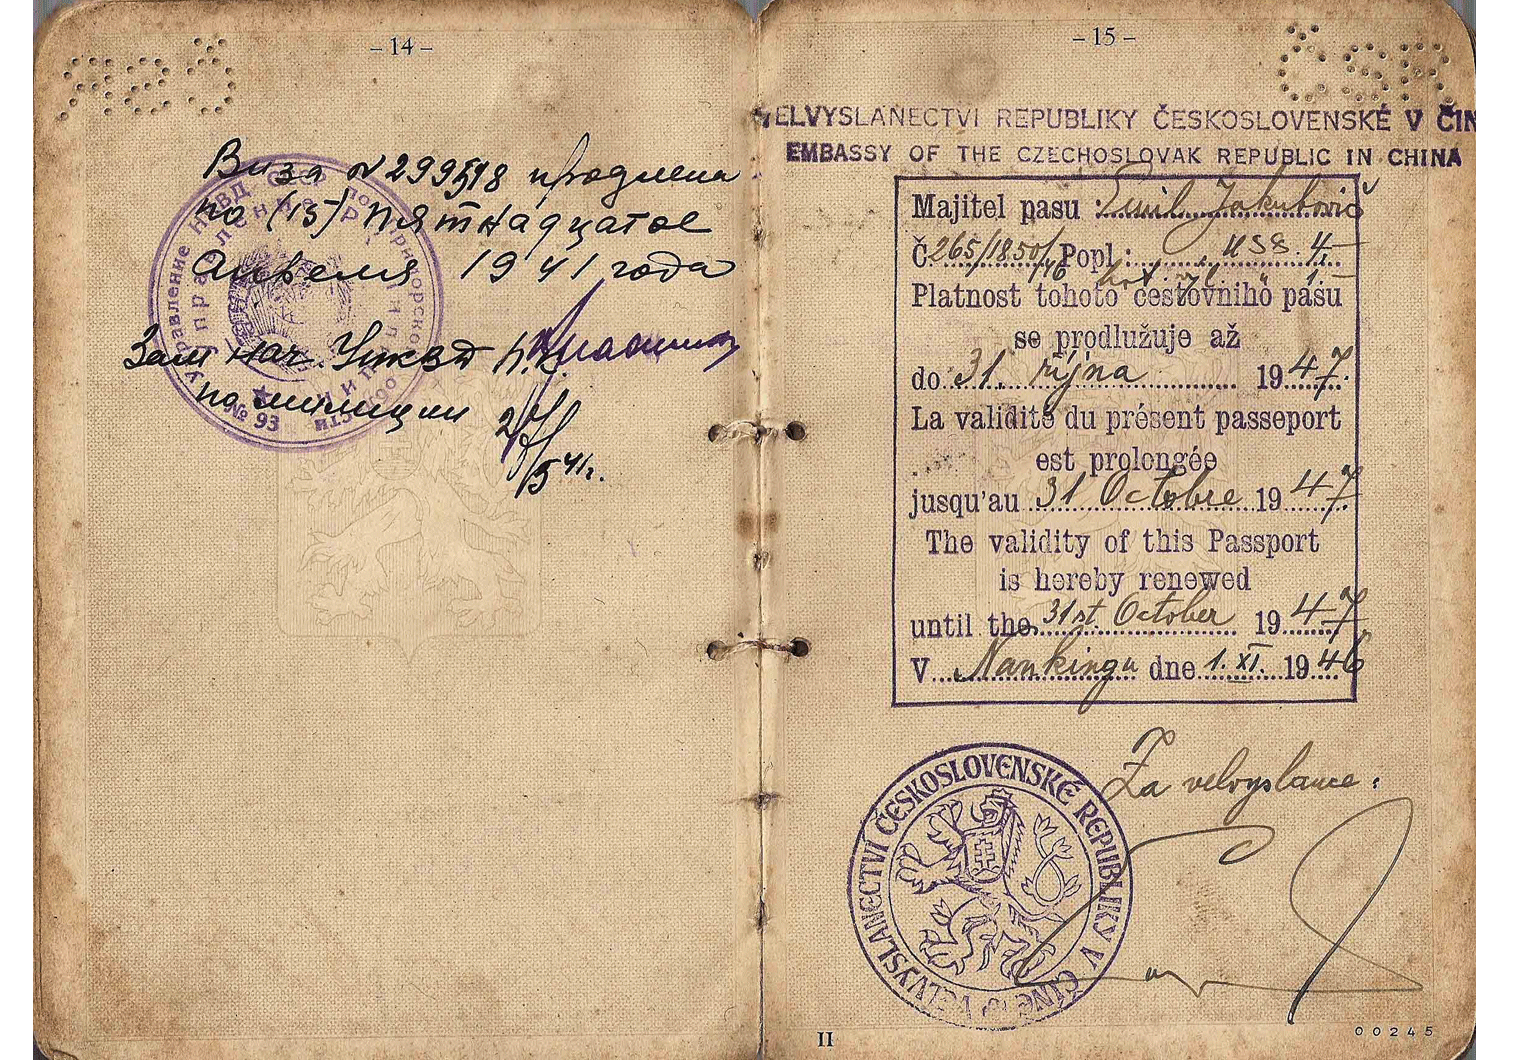 – 14 –
ČSR
Виза №299518 продлена
по (15) пятнадцатое
Апреля 1941 года
Зам нач.
по милиции
41г.
Управление НКВД СССР по Приморскому
№ 93
– 15 –
ČSR
VELVYSLANECTVÍ REPUBLIKY ČESKOSLOVENSKÉ V ČÍN
EMBASSY OF THE CZECHOSLOVAK REPUBLIC IN CHINA
Majitel pasu : Emil Jakubovič
Č. 265/1850/46 Popl : US$ 4.–
hot. 1.–
Platnost tohoto cestovního pasu
se prodlužuje až
do 31. října 1947.
La validité du présent passeport
est prolongée
jusqu'au 31 Octobre 1947
The validity of this Passport
is hereby renewed
until the 31st. October 1947
V Nankingu dne 1. XI. 1946
Za velvyslance :
VELVYSLANECTVÍ ČESKOSLOVENSKÉ REPUBLIKY V ČÍNĚ
II
00245